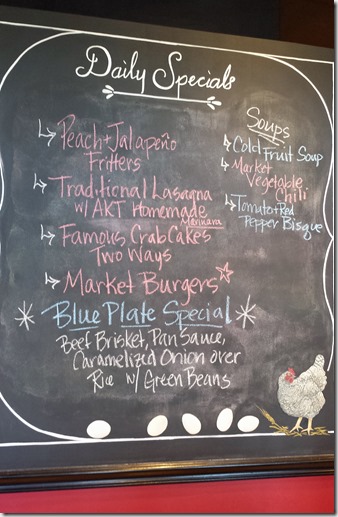 Daily Specials
Peach + Jalapeño
Fritters
Traditional Lasagna
w/ AKT Homemade
Marinara
Famous Crab Cakes
Two Ways
Market Burgers
Blue Plate Special
Beef Brisket, Pan Sauce,
Caramelized Onion over
Rice w/ Green Beans
Soups
Cold Fruit Soup
Market
Vegetable
Chili
Tomato + Red
Pepper Bisque